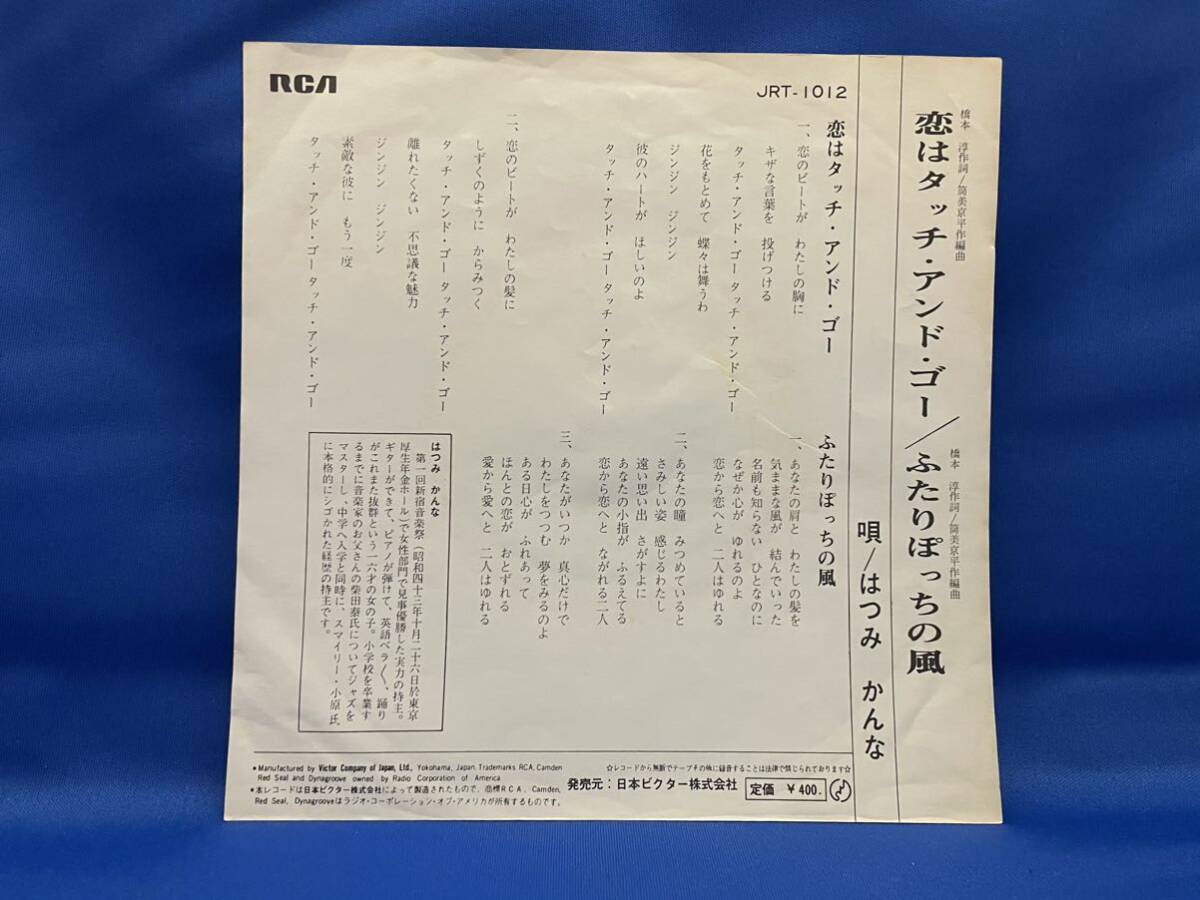 RCA
JRT-1012
橋本 淳作詞/筒美京平作編曲
恋はタッチ・アンド・ゴー/ふたりぼっちの風
橋本 淳作詞/筒美京平作編曲
唄/はつみ かんな
恋はタッチ・アンド・ゴー
一、恋のビートが わたしの胸に
キザな言葉を 投げつける
タッチ・アンド・ゴー タッチ・アンド・ゴー
花をもとめて 蝶々は舞うわ
ジンジン ジンジン
彼のハートが ほしいのよ
タッチ・アンド・ゴー タッチ・アンド・ゴー
二、恋のビートが わたしの髪に
しずくのように からみつく
タッチ・アンド・ゴー タッチ・アンド・ゴー
離れたくない 不思議な魅力
ジンジン ジンジン
素敵な彼に もう一度
タッチ・アンド・ゴー タッチ・アンド・ゴー
ふたりぼっちの風
一、あなたの肩と わたしの髪を
気ままな風が 結んでいった
名前も知らない ひとなのに
なぜか心が ゆれるのよ
恋から恋へと 二人はゆれる
二、あなたの瞳 みつめていると
さみしい姿 感じるわたし
遠い思い出 さがすよに
あなたの小指が ふるえてる
恋から恋へと ながれる二人
三、あなたがいつか 真心だけで
わたしをつつむ 夢をみるのよ
ある日心が ふれあって
ほんとの恋が おとずれる
愛から愛へと 二人はゆれる
はつみ かんな
第一回新宿音楽祭(昭和四十三年十月二十六日於東京
厚生年金ホール)で女性部門で見事優勝した実力の持主。
ギターができて、ピアノが弾けて、英語ペラ〱、踊り
がこれまた抜群という一六才の女の子。小学校を卒業す
るまでに音楽家のお父さんの柴田泰氏についてジャズを
マスターし、中学へ入学と同時に、スマイリー・小原氏
に本格的にシゴかれた経歴の持主です。
•Manufactured by Victor Company of Japan, Ltd., Yokohama, Japan. Trademarks RCA, Camden
Red Seal and Dynagroove owned by Radio Corporation of America.
•本レコードは日本ビクター株式会社によって製造されたもので、商標RCA、Camden,
Red Seal, Dynagrooveはラジオ・コーポレーション・オブ・アメリカが所有するものです。
☆レコードから無断でテープその他に録音することは法律で禁じられております☆
発売元：日本ビクター株式会社
定価 ¥400.